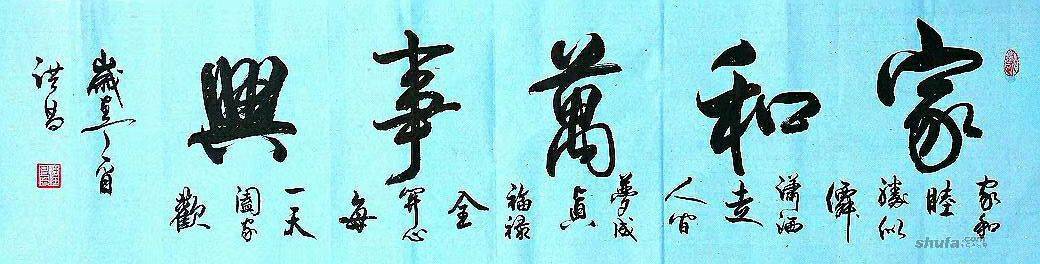 家和萬事興
家和
睦
勝似
僊
瀟洒
走
人間
夢成
真
福禄
全
開心
每
一天
闔家
歡
歲在丁酉
洪昌
shufa.com